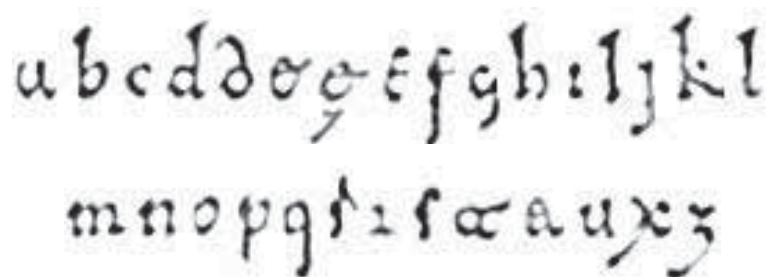 a b c d d e ę e f g h i l j k l
m n o p q r r s t a u x z